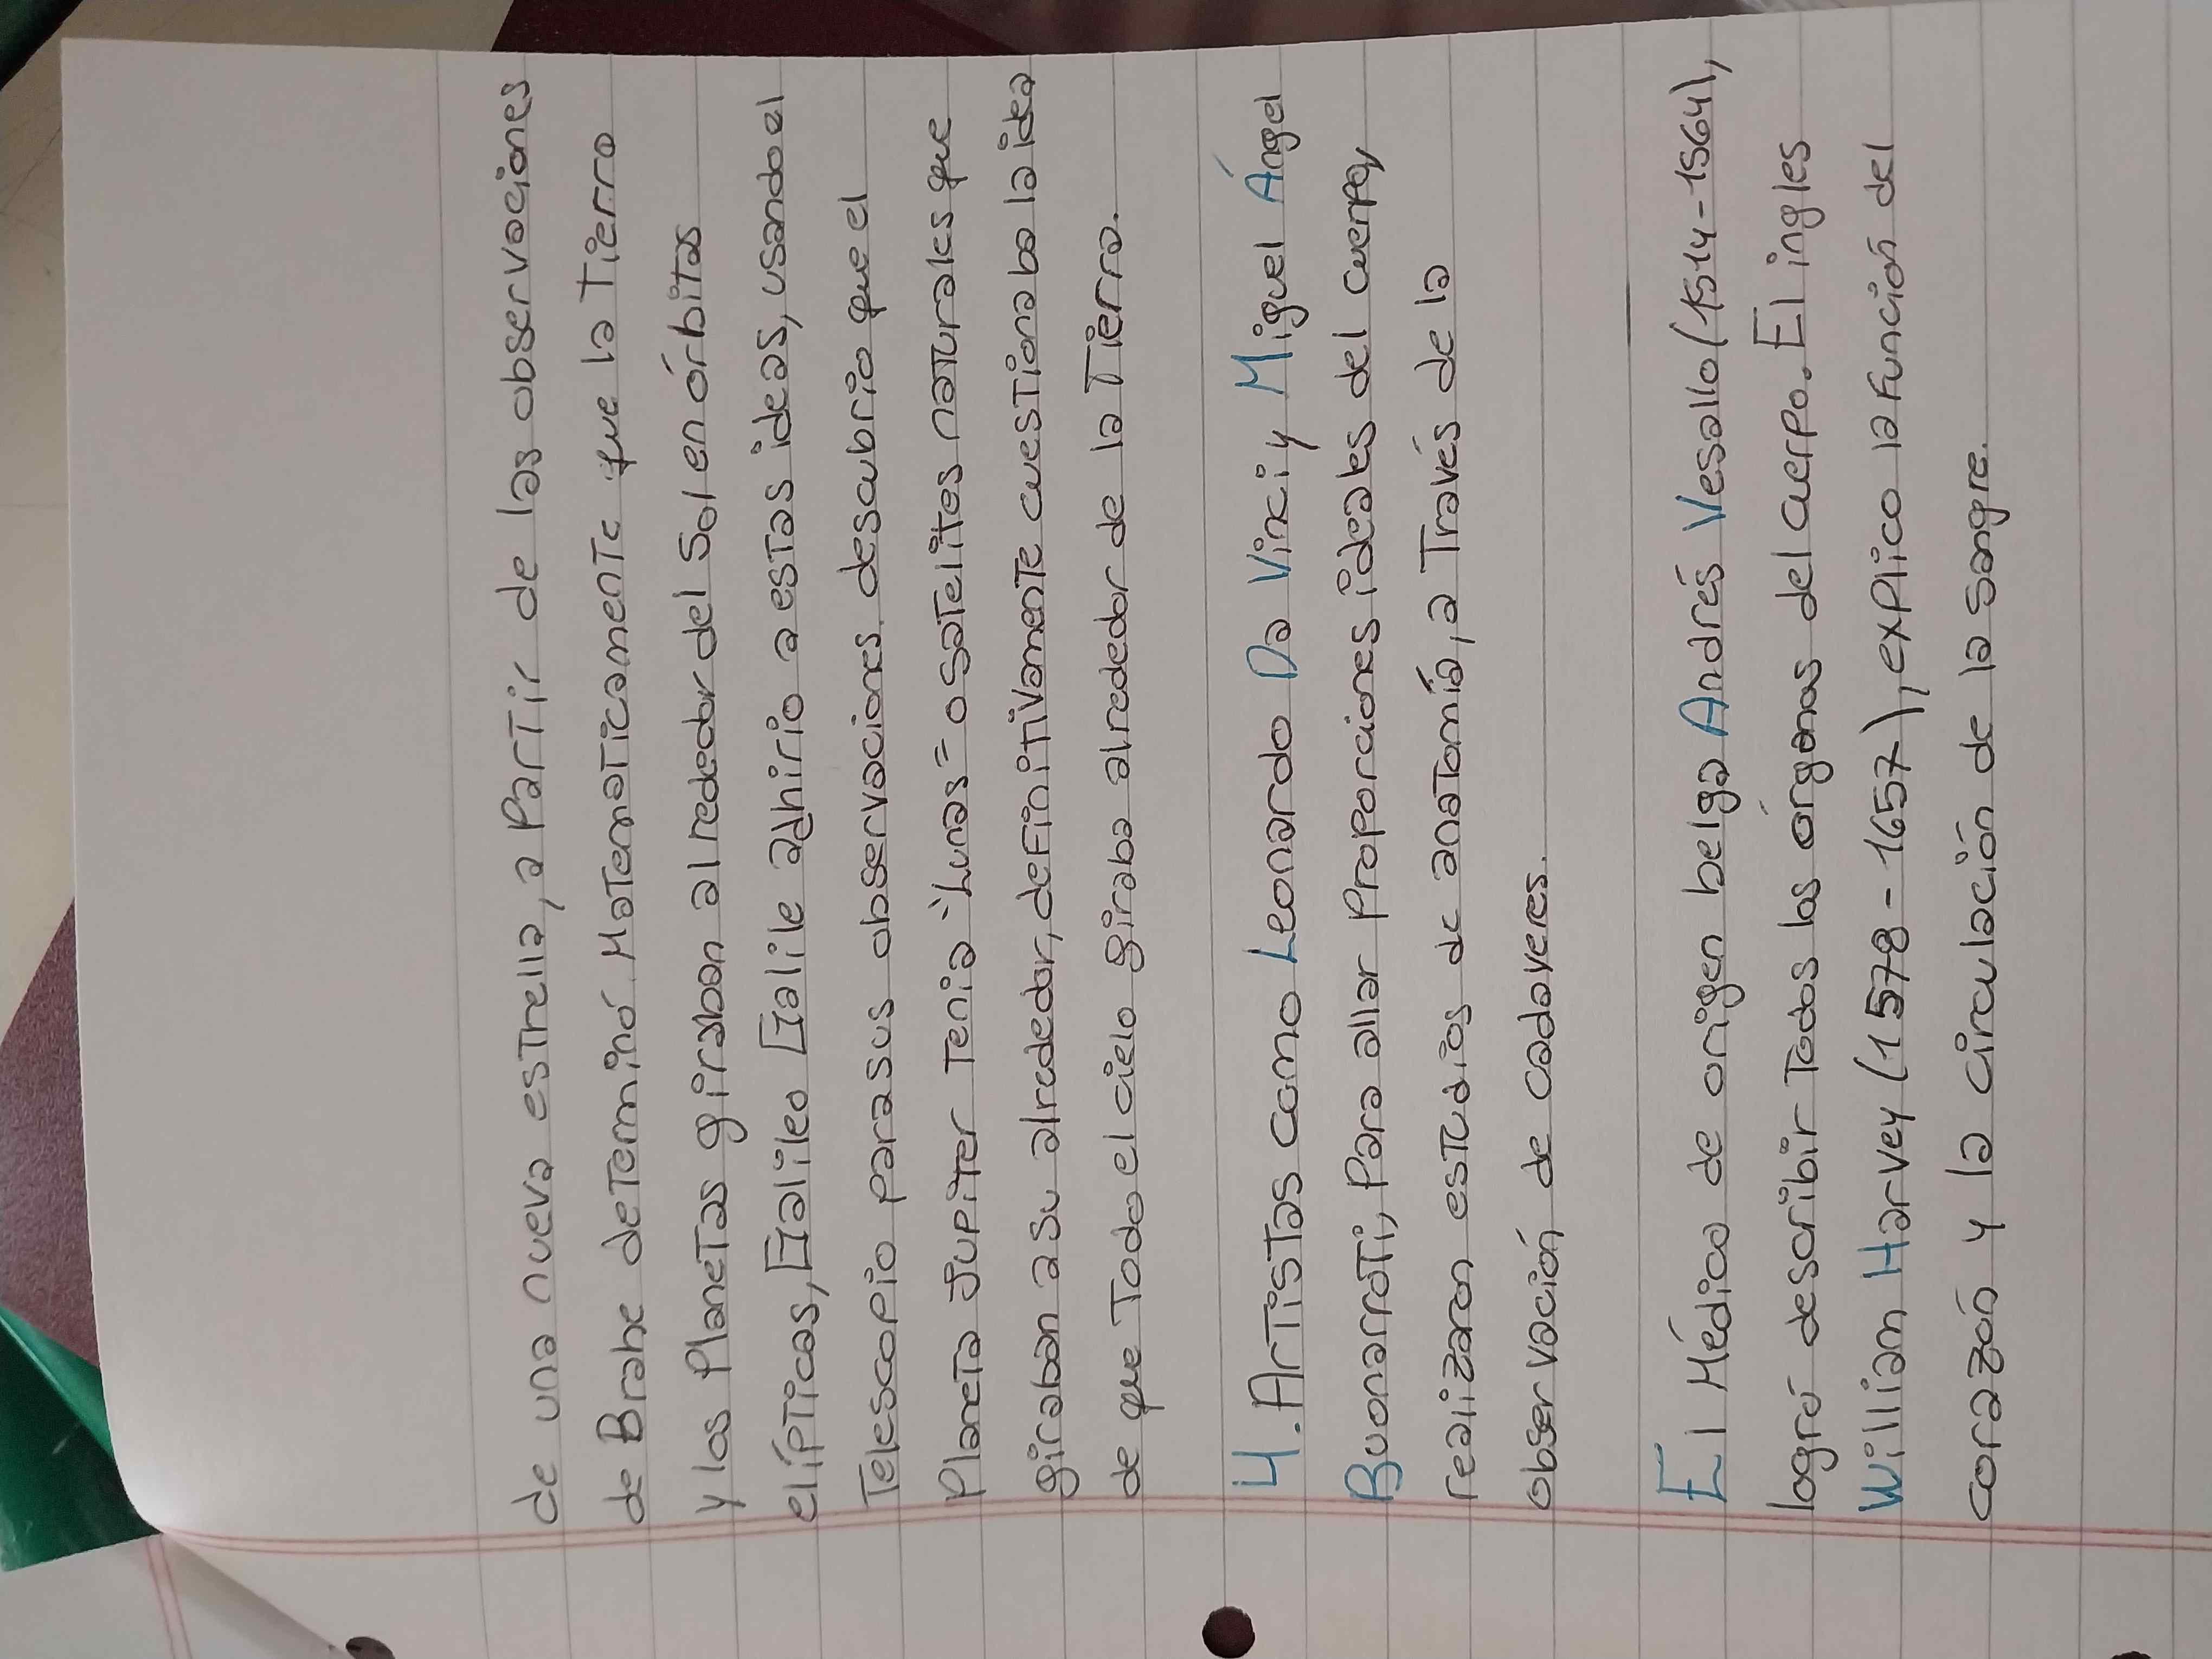 de una nueva estrella, a Partir de las observaciones
de Brahe determinó Matematicamente que la Tierra
y los Planetas giraban alrededor del Sol en órbitas
elípticas, Galileo Galile adhirio a estas ideas, usando el
Telescopio para sus observaciones descubrio que el
Planeta Jupiter Tenia "Lunas" o satelites naturales que
giraban a su alrededor, definitivamente cuestionaba la idea
de que Todo el cielo giraba alrededor de la Tierra.
4. Artistas como Leonardo Da Vinci y Miguel Ángel
Buonarroti, Para allar Proporciones ideales del cuerpo,
realizaron estudios de anatomía, a Través de la
observación de cadaveres.
El Médico de origen belga Andrés Vesallo (1514-1564),
logró describir Todos los órganos del cuerpo. El ingles
William Harvey (1578-1657), explico la función del
corazón y la circulación de la sangre.